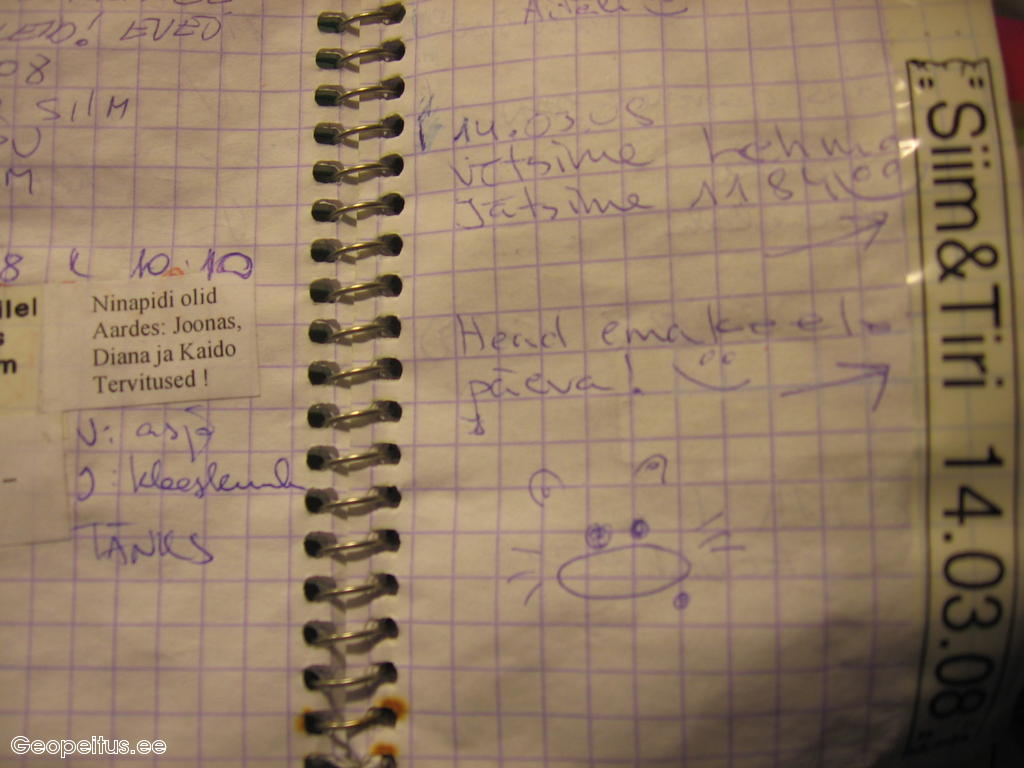 EVED
08
SILM
M
8 K 10.10
Ninapidi olid
Aardes: Joonas,
Diana ja Kaido
Tervitused !
V: asja
J: kleeskunk
TÄNKS
Aitäh
14.03.08
võtsime Lehma
Jätsime 1184
Head emakeele
päeva!
Siim&Tiri 14.03.08
Geopeitus.ee